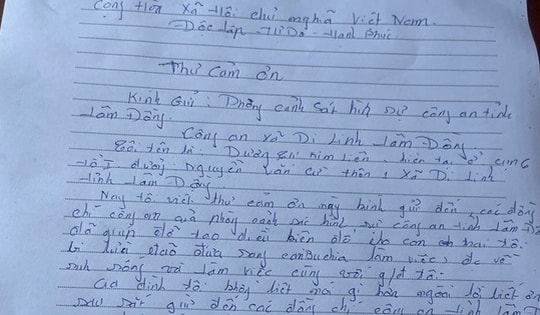 Cộng Hòa Xã Hội chủ nghĩa Việt Nam.
Độc lập - Tự Do - Hạnh Phúc.
Thư Cảm ơn
Kính Gửi: Phòng cảnh sát hình sự công an tỉnh
Lâm Đồng.
Công an xã Di Linh Lâm Đồng
Tôi tên là: Dương Thị Kim Liên, hiện tại ở
tổ 1 đường Nguyễn Văn Cừ thôn 1 xã Di Linh
tỉnh Lâm Đồng
Nay tô viết thư cảm ơn nay gửi đến các đồng
chí công an cảnh sát hình sự công an tỉnh Lâm Đ
đã giúp đỡ tạo điều kiện cho con trai tô.
bị lừa đảo đưa sang canbuchia làm việc, đc về
sinh sống và làm việc cùng với gđ tô.
Gia đình tô không biết nói gì hơn ngoài lò biết ơn
sâu sắc gửi đến các đồng chí công an tỉnh Lâm Đ